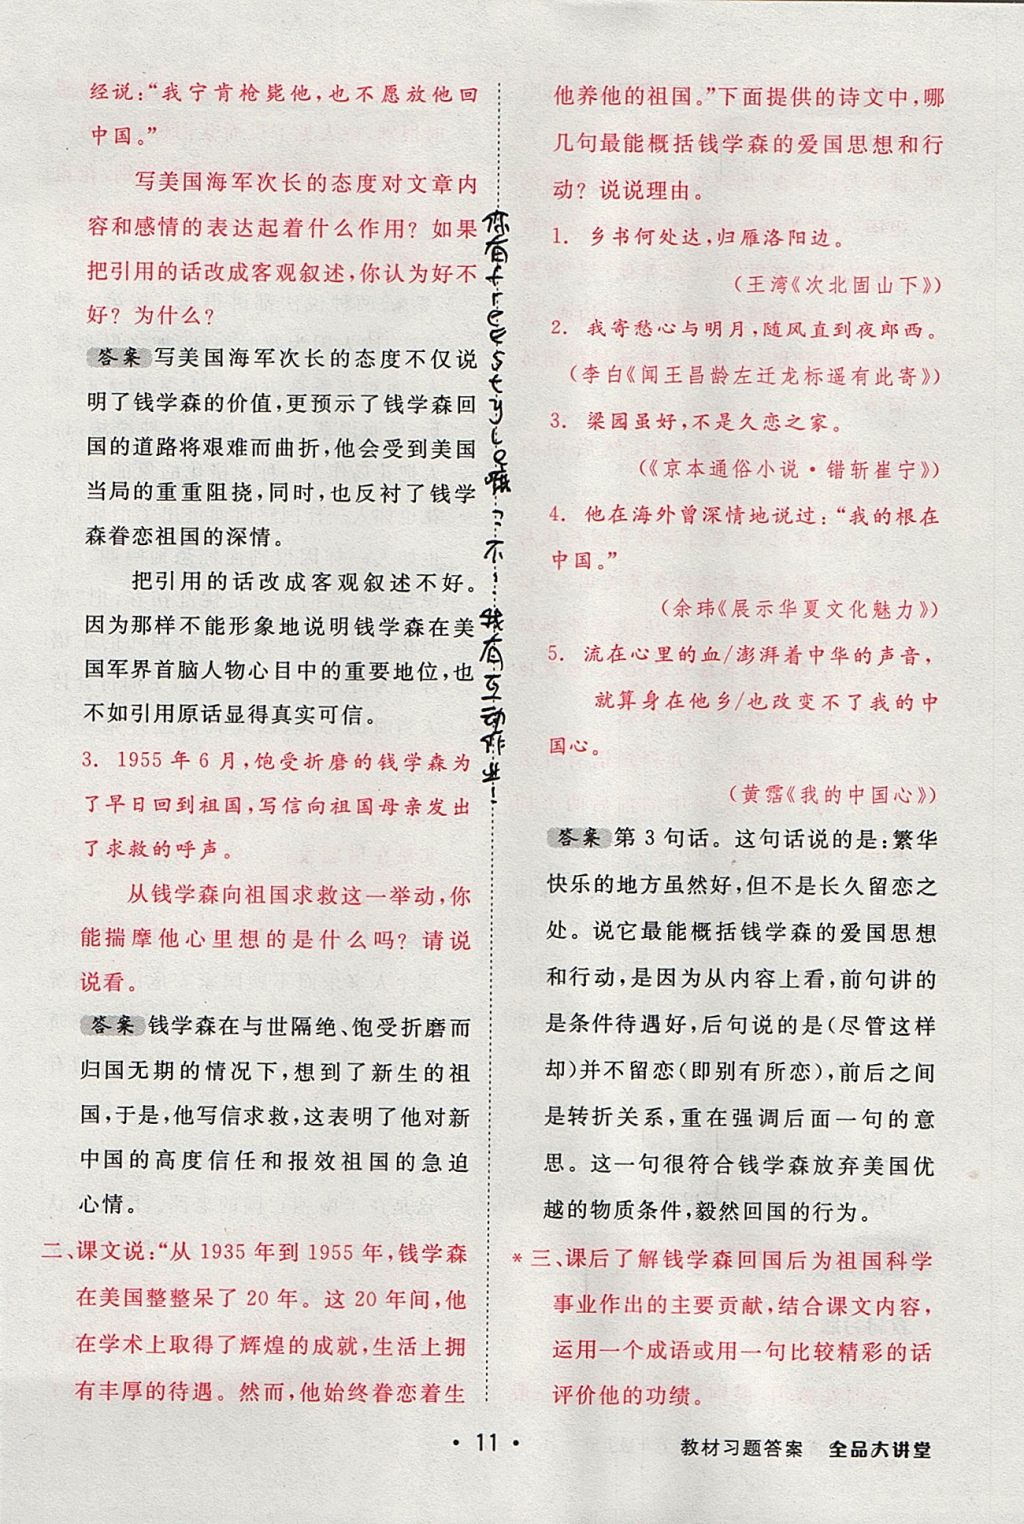 经说:“我宁肯枪毙他,也不愿放他回
中国。”
写美国海军次长的态度对文章内
容和感情的表达起着什么作用?如果
把引用的话改成客观叙述,你认为好不
好?为什么?
答案 写美国海军次长的态度不仅说
明了钱学森的价值,更预示了钱学森回
国的道路将艰难而曲折,他会受到美国
当局的重重阻挠,同时,也反衬了钱学
森眷恋祖国的深情。
把引用的话改成客观叙述不好。
因为那样不能形象地说明钱学森在美
国军界首脑人物心目中的重要地位,也
不如引用原话显得真实可信。
3. 1955年6月,饱受折磨的钱学森为
了早日回到祖国,写信向祖国母亲发出
了求救的呼声。
从钱学森向祖国求救这一举动,你
能揣摩他心里想的是什么吗?请说
说看。
答案 钱学森在与世隔绝、饱受折磨而
归国无期的情况下,想到了新生的祖
国,于是,他写信求救,这表明了他对新
中国的高度信任和报效祖国的急迫
心情。
二、课文说:“从1935年到1955年,钱学森
在美国整整呆了20年。这20年间,他
在学术上取得了辉煌的成就,生活上拥
有丰厚的待遇。然而,他始终眷恋着生
你有freestyle嘛?不!我有互动作业!
他养他的祖国。”下面提供的诗文中,哪
几句最能概括钱学森的爱国思想和行
动?说说理由。
1. 乡书何处达,归雁洛阳边。
(王湾《次北固山下》)
2. 我寄愁心与明月,随风直到夜郎西。
(李白《闻王昌龄左迁龙标遥有此寄》)
3. 梁园虽好,不是久恋之家。
(《京本通俗小说·错斩崔宁》)
4. 他在海外曾深情地说过:“我的根在
中国。”
(余玮《展示华夏文化魅力》)
5. 流在心里的血/澎湃着中华的声音,
就算身在他乡/也改变不了我的中
国心。
(黄霑《我的中国心》)
答案 第3句话。这句话说的是:繁华
快乐的地方虽然好,但不是长久留恋之
处。说它最能概括钱学森的爱国思想
和行动,是因为从内容上看,前句讲的
是条件待遇好,后句说的是(尽管这样
却)并不留恋(即别有所恋),前后之间
是转折关系,重在强调后面一句的意
思。这一句很符合钱学森放弃美国优
越的物质条件,毅然回国的行为。
*三、课后了解钱学森回国后为祖国科学
事业作出的主要贡献,结合课文内容,
运用一个成语或用一句比较精彩的话
评价他的功绩。
· 11 ·
教材习题答案 全品大讲堂